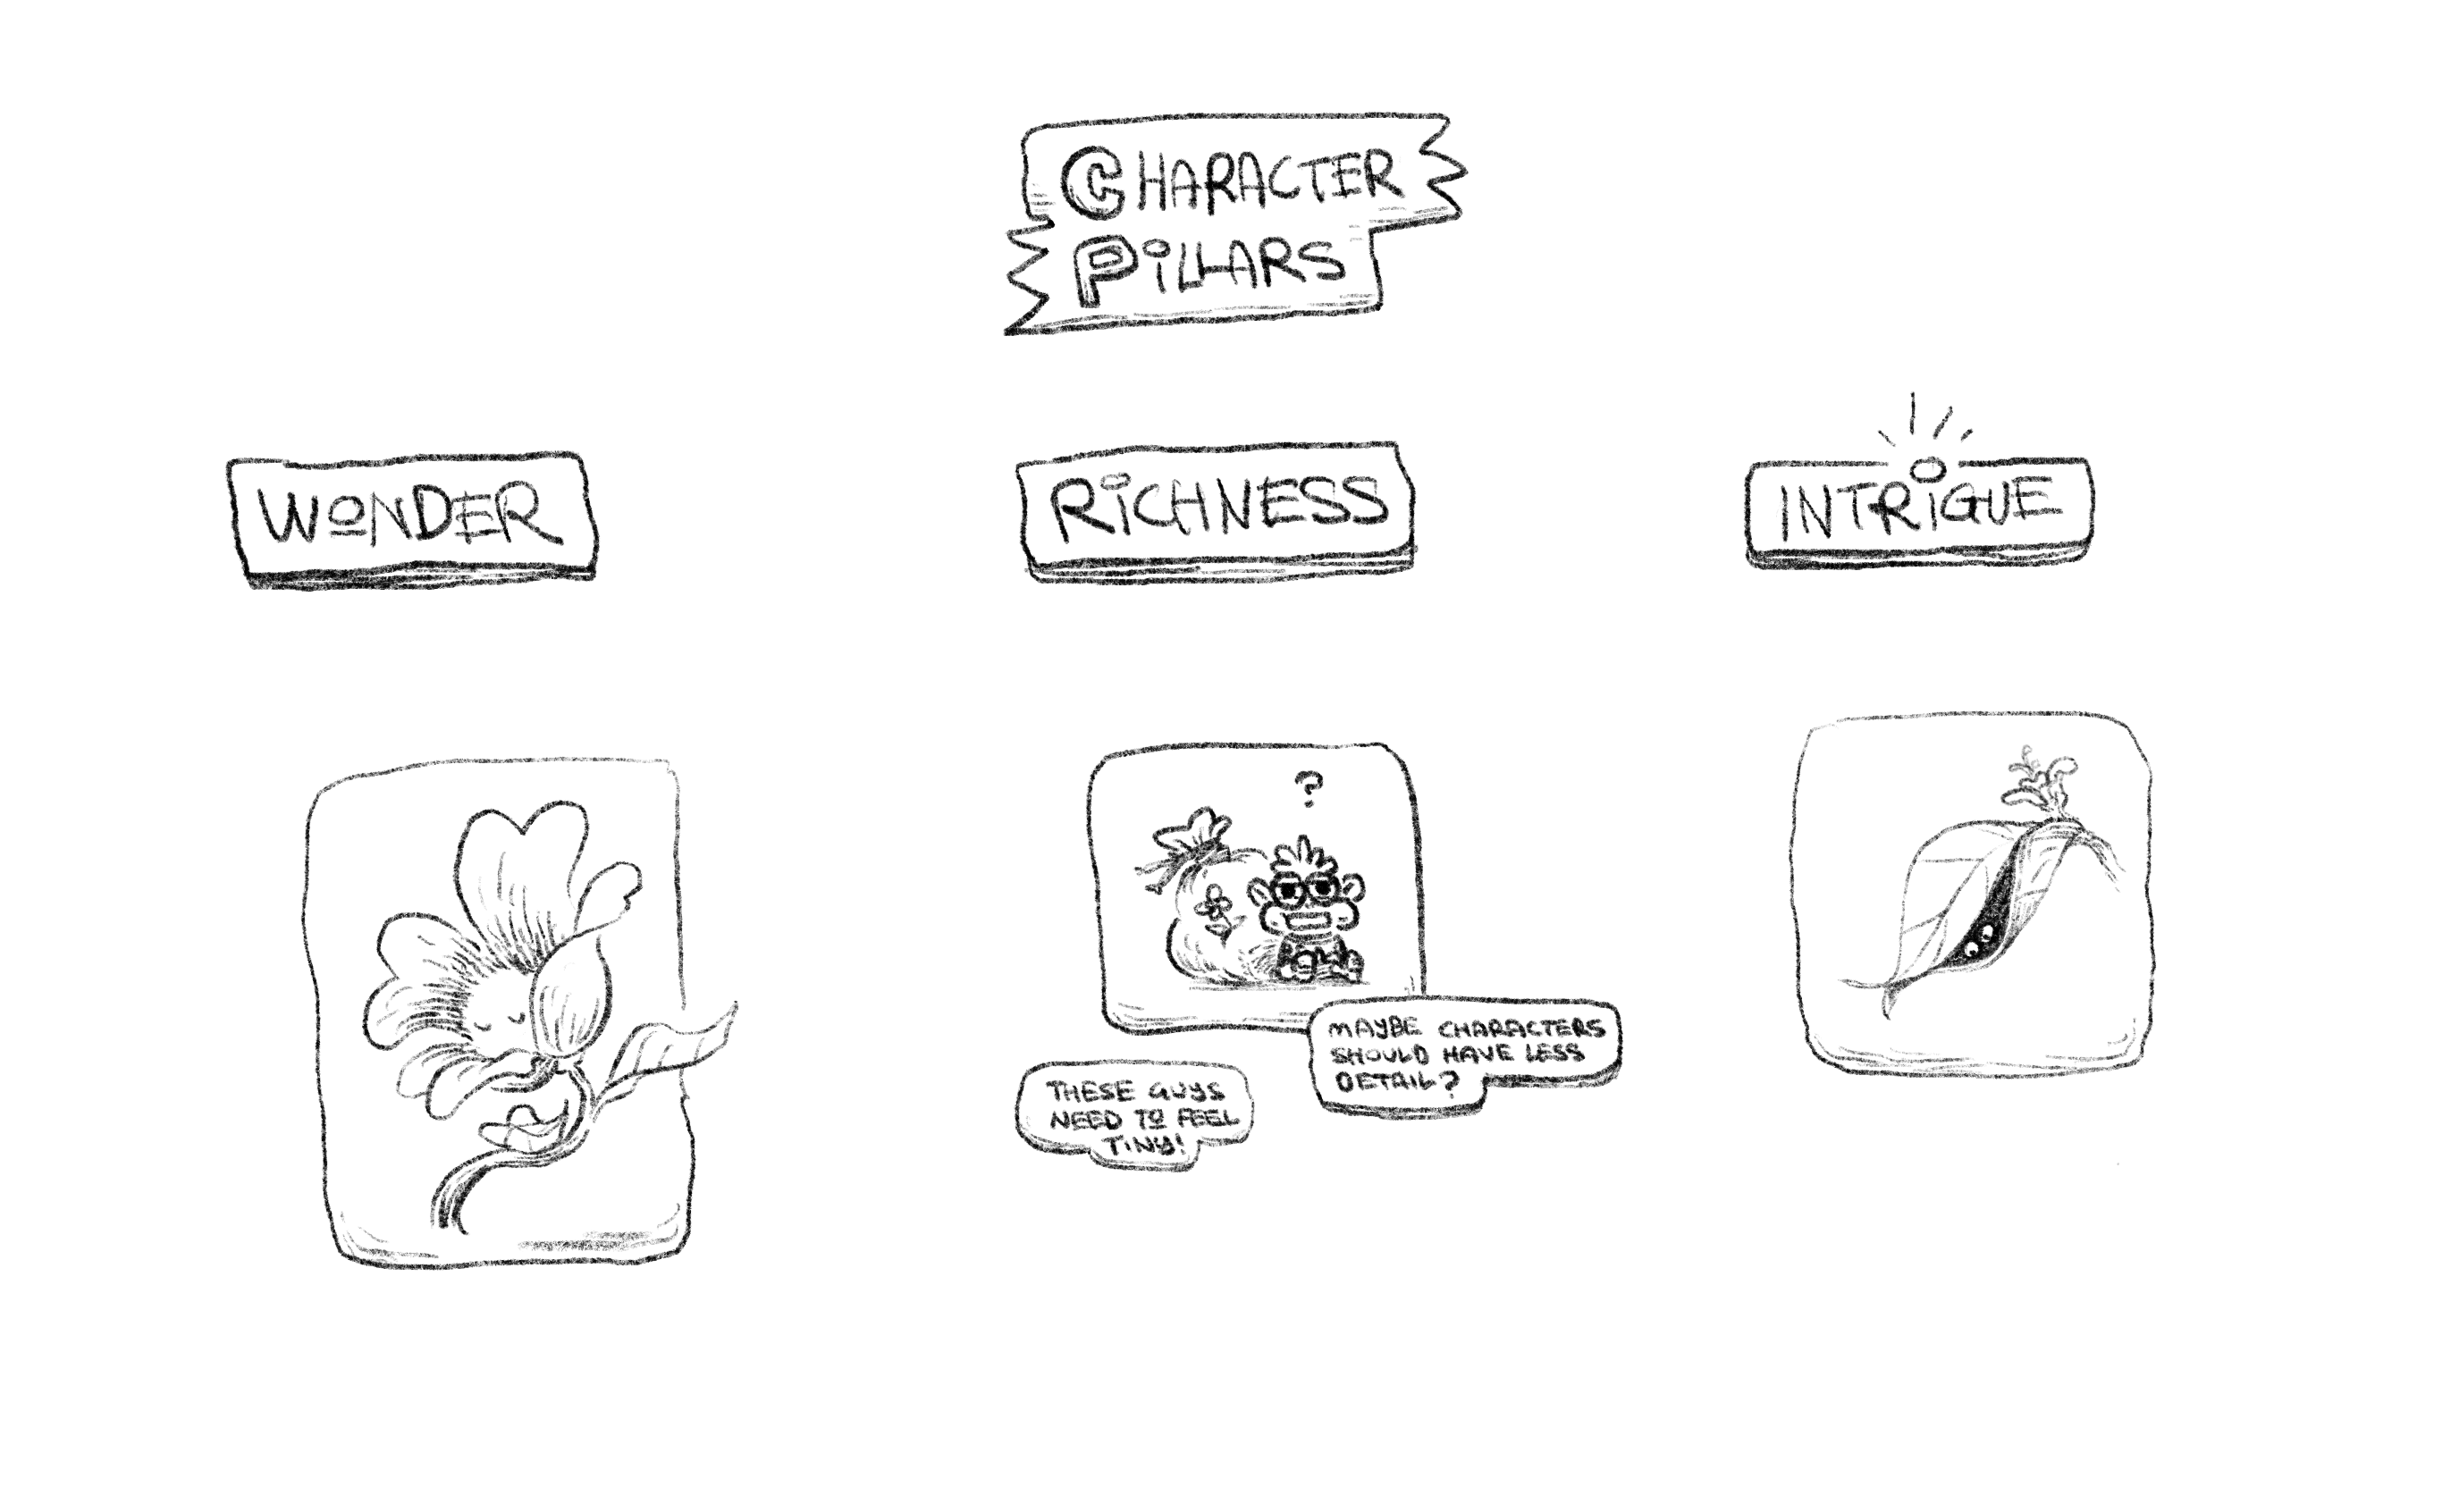 CHARACTER
PiLLARS
WONDER
RiCHNESS
INTRiGUE
?
MAYBE CHARACTERS
SHOULD HAVE LESS
DETAIL?
THESE GUYS
NEED TO FEEL
TiNY!